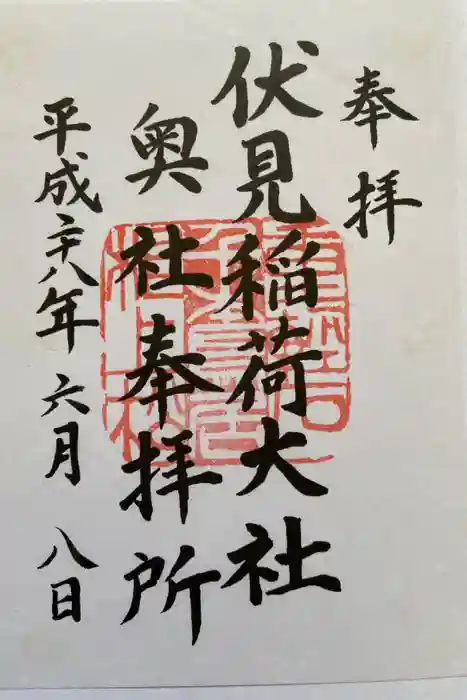 奉拝
伏見稲荷大社
奥社奉拝所
平成二十八年六月八日